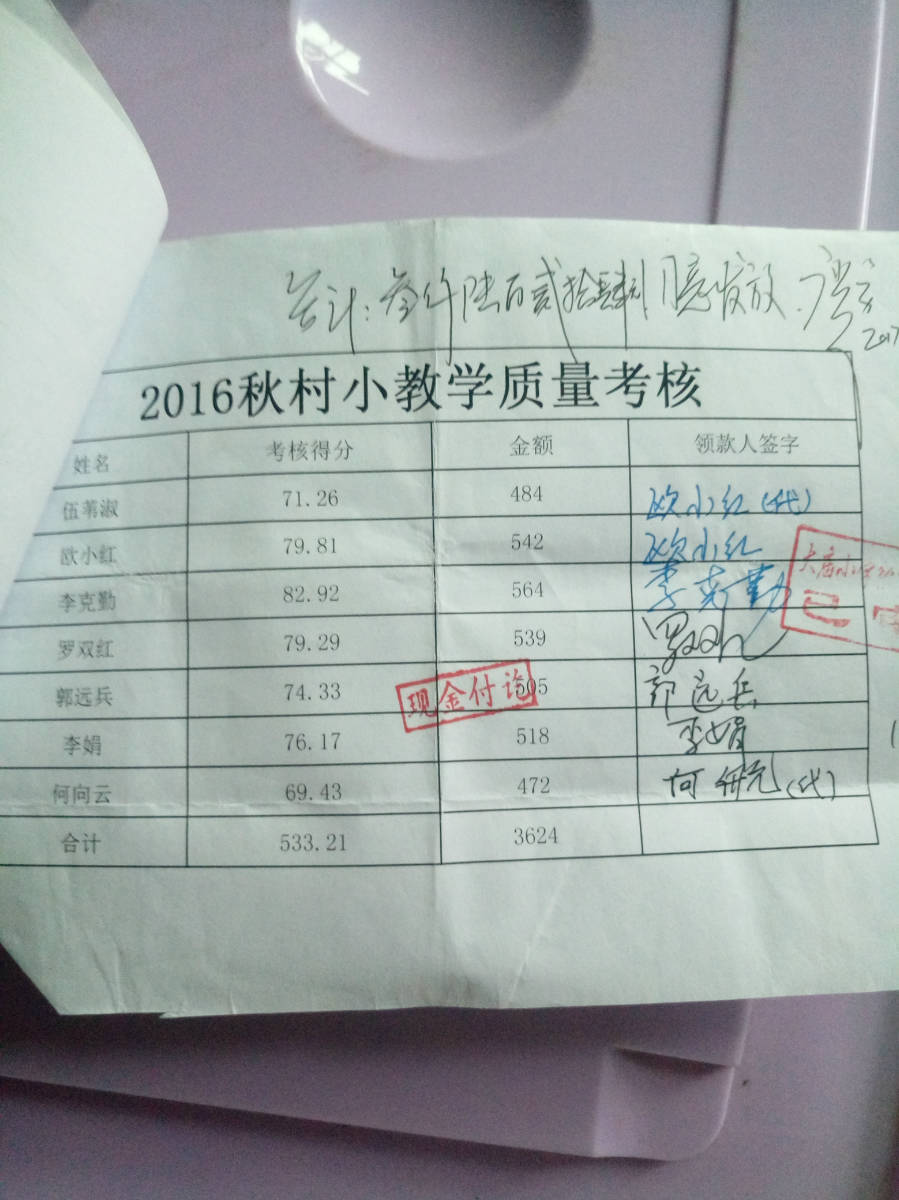 合计:叁仟陆百贰拾肆元 同意发放.
2017
2016秋村小教学质量考核
姓名 考核得分 金额 领款人签字
伍苇淑 71.26 484 欧小红(代)
欧小红 79.81 542 欧小红
李克勤 82.92 564 李克勤
罗双红 79.29 539 罗双红
郭远兵 74.33 505 郭远兵
李娟 76.17 518 李娟
何向云 69.43 472 (代)
合计 533.21 3624
现金付讫
已